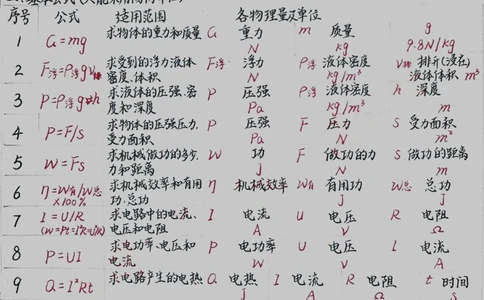 序号 公式 适用范围 各物理量及单位
1 G=mg 求物体的重力和质量 G 重力 N m 质量 kg g 9.8N/kg
2 F浮=ρ浮gV排 求受到的浮力液体密度·体积 F浮 浮力 N ρ浮 液体密度 kg/m³ V排 排开(浸在)液体体积 m³
3 P=ρ浮gh 求液体的压强·密度和深度 P 压强 Pa ρ浮 液体密度 kg/m³ h 深度 m
4 P=F/S 求物体的压强压力,受力面积 P 压强 Pa F 压力 N S 受力面积 m²
5 W=Fs 求机械做功的多少,力和距离 W 功 J F 做功的力 N S 做功的距离 m
6 η=W有/W总 X100% 求机械效率和有用功·总功 η 机械效率 W有 有用功 J W总 总功 J
7 I=U/R (W=Pt=I²R=U/R) 求电路中的电流、电压和电阻 I 电流 A U 电压 V R 电阻 Ω
8 P=UI 求电功率、电压和电流 P 电功率 W U 电压 V I 电流 A
9 Q=I²Rt 求电路产生的电热 Q 电热 J I 电流 A R 电阻 Ω t 时间 S